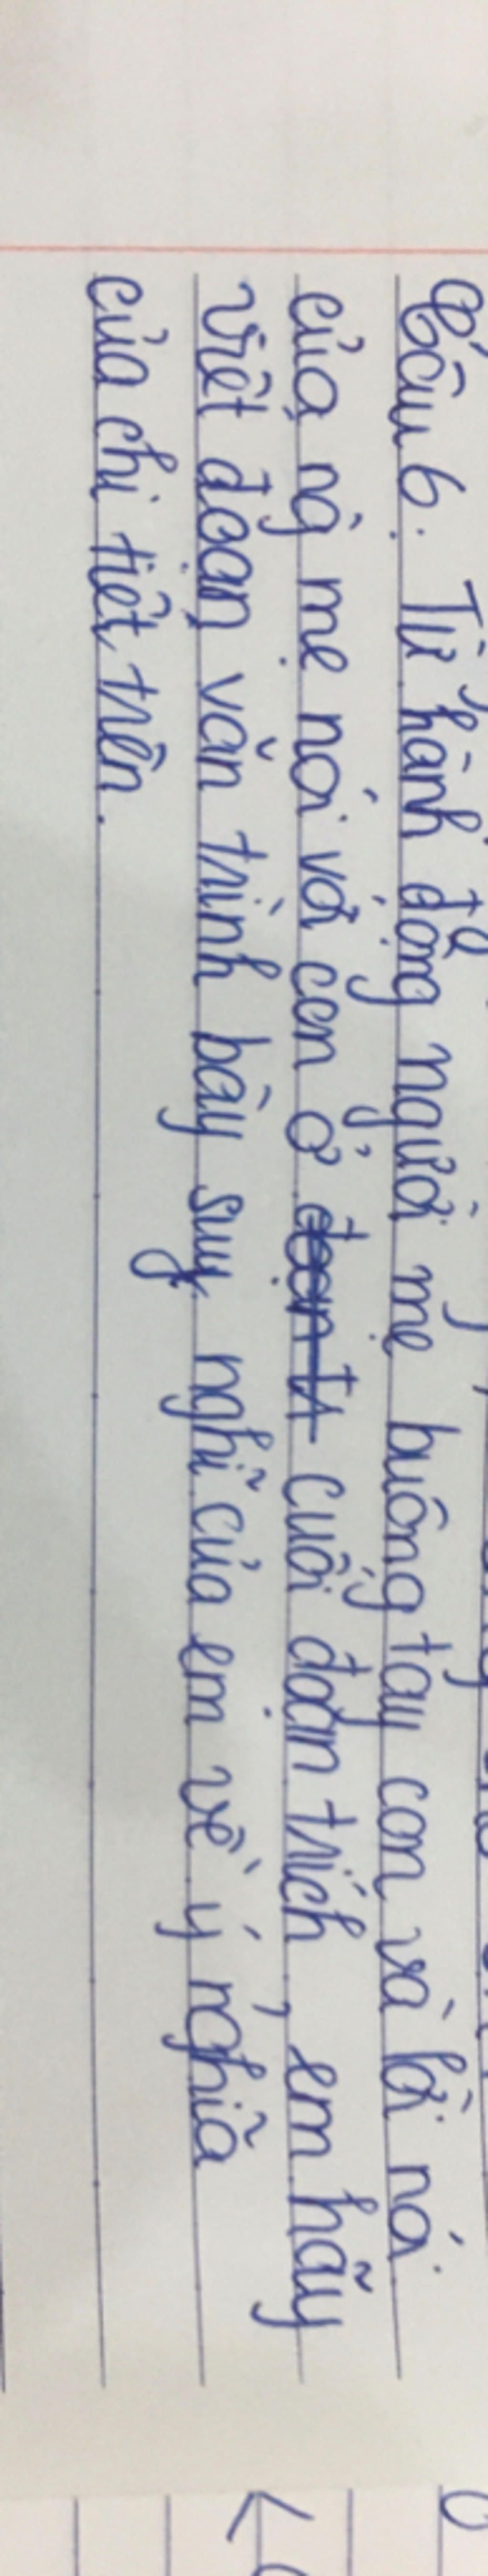 Câu 6. Từ hành động người mẹ buông tay con và lời nói
của ng mẹ nói với con ở cuối đoạn trích, em hãy
viết đoạn văn trình bày suy nghĩ của em về ý nghĩa
của chi tiết trên.